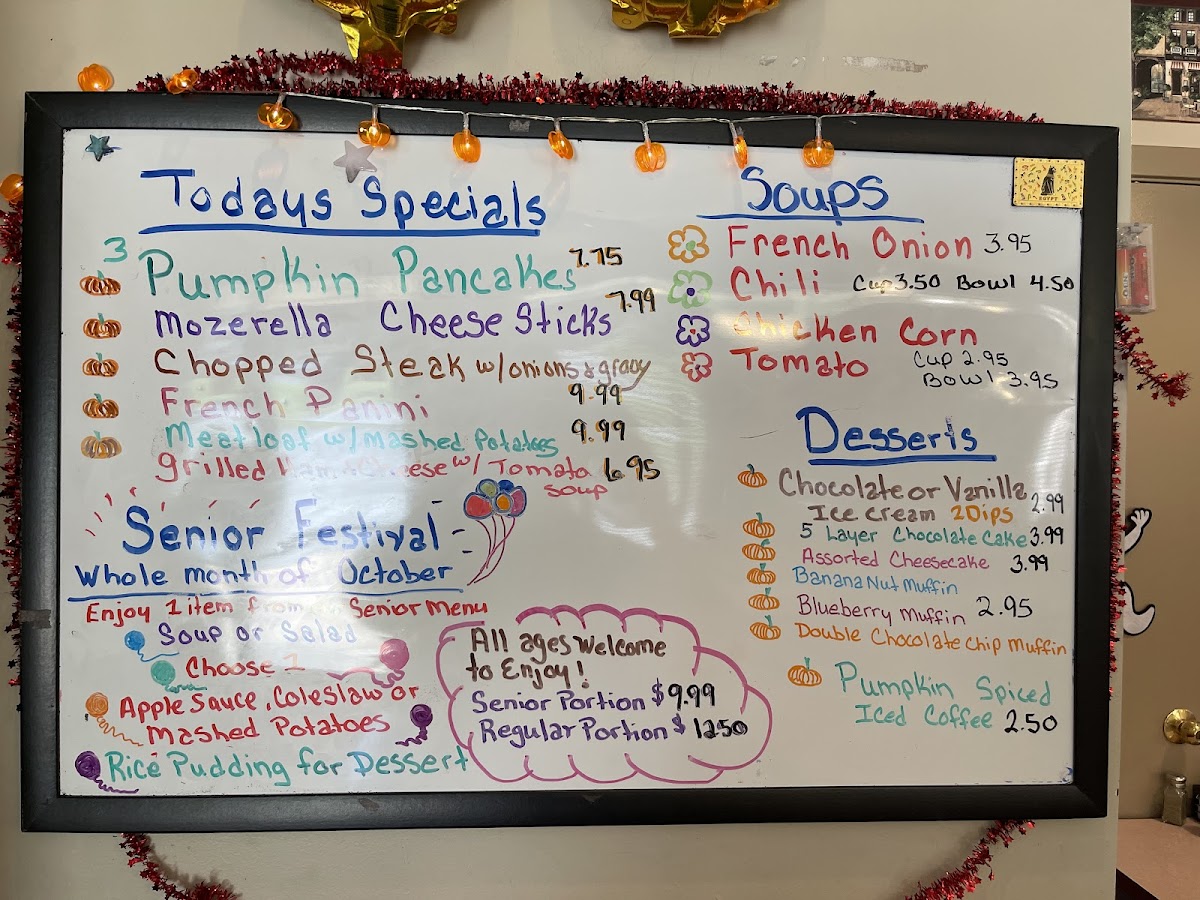 Todays Specials
3 Pumpkin Pancakes 7.75
Mozerella Cheese Sticks 7.99
Chopped Steak w/onions & gravy
French Panini 9.99
Meatloaf w/mashed Potatoes 9.99
grilled Ham Cheese w/ Tomato 6.95
soup
Senior Festival
Whole month of October
Enjoy 1 item from Senior Menu
Soup or Salad
Choose 1
Apple Sauce, Coleslaw or
Mashed Potatoes
Rice Pudding for Dessert
All ages welcome
to Enjoy!
Senior Portion $9.99
Regular Portion $ 12.50
Soups
French Onion 3.95
Chili Cup 3.50 Bowl 4.50
Chicken Corn
Tomato Cup 2.95
Bowl 3.95
Desserts
Chocolate or Vanilla
Ice cream 2 Dips 2.99
5 Layer Chocolate Cake 3.99
Assorted Cheesecake 3.99
Banana Nut Muffin
Blueberry Muffin 2.95
Double Chocolate Chip Muffin
Pumpkin Spiced
Iced Coffee 2.50
EGYPT